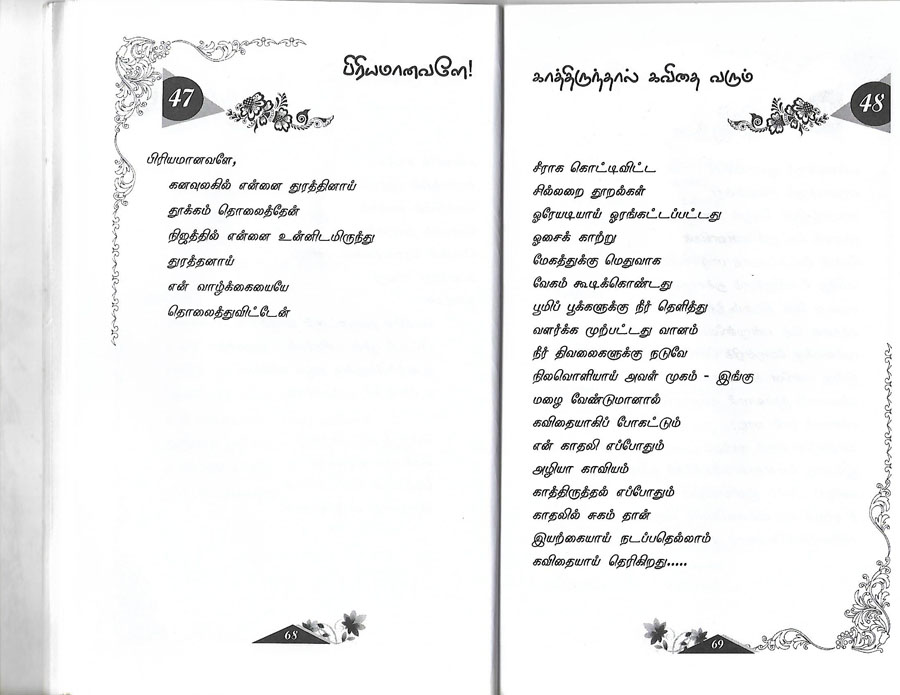 பிரியமானவளே!
47
பிரியமானவளே,
கனவுலகில் என்னை துரத்தினாய்
தூக்கம் தொலைத்தேன்
நிஜத்தில் என்னை உன்னிடமிருந்து
துரத்தனாய்
என் வாழ்க்கையையே
தொலைத்துவிட்டேன்
68
காத்திருந்தால் கவிதை வரும்
48
சீராக கொட்டிவிட்ட
சில்லறை தூறல்கள்
ஓரேயடியாய் ஓரங்கட்டப்பட்டது
ஓசைக் காற்று
மேகத்துக்கு மெதுவாக
வேகம் கூடிக்கொண்டது
பூமிப் பூக்களுக்கு நீர் தெளித்து
வளர்க்க முற்பட்டது வானம்
நீர் திவலைகளுக்கு நடுவே
நிலவொளியாய் அவள் முகம் - இங்கு
மழை வேண்டுமானால்
கவிதையாகிப் போகட்டும்
என் காதலி எப்போதும்
அழியா காவியம்
காத்திருத்தல் எப்போதும்
காதலில் சுகம் தான்
இயற்கையாய் நடப்பதெல்லாம்
கவிதையாய் தெரிகிறது.....
69